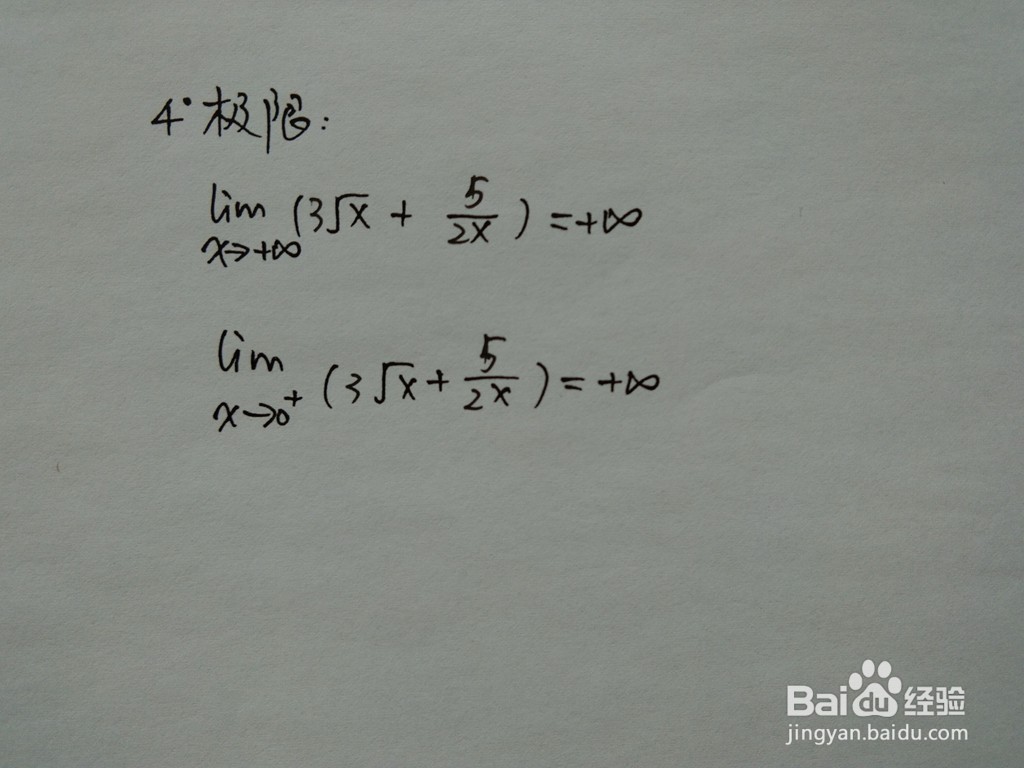 4° 极限:
lim x→+∞ (3√x + 5/2x) = +∞
lim x→0⁺ (3√x + 5/2x) = +∞
Bai du 经验
jingyan.baidu.com